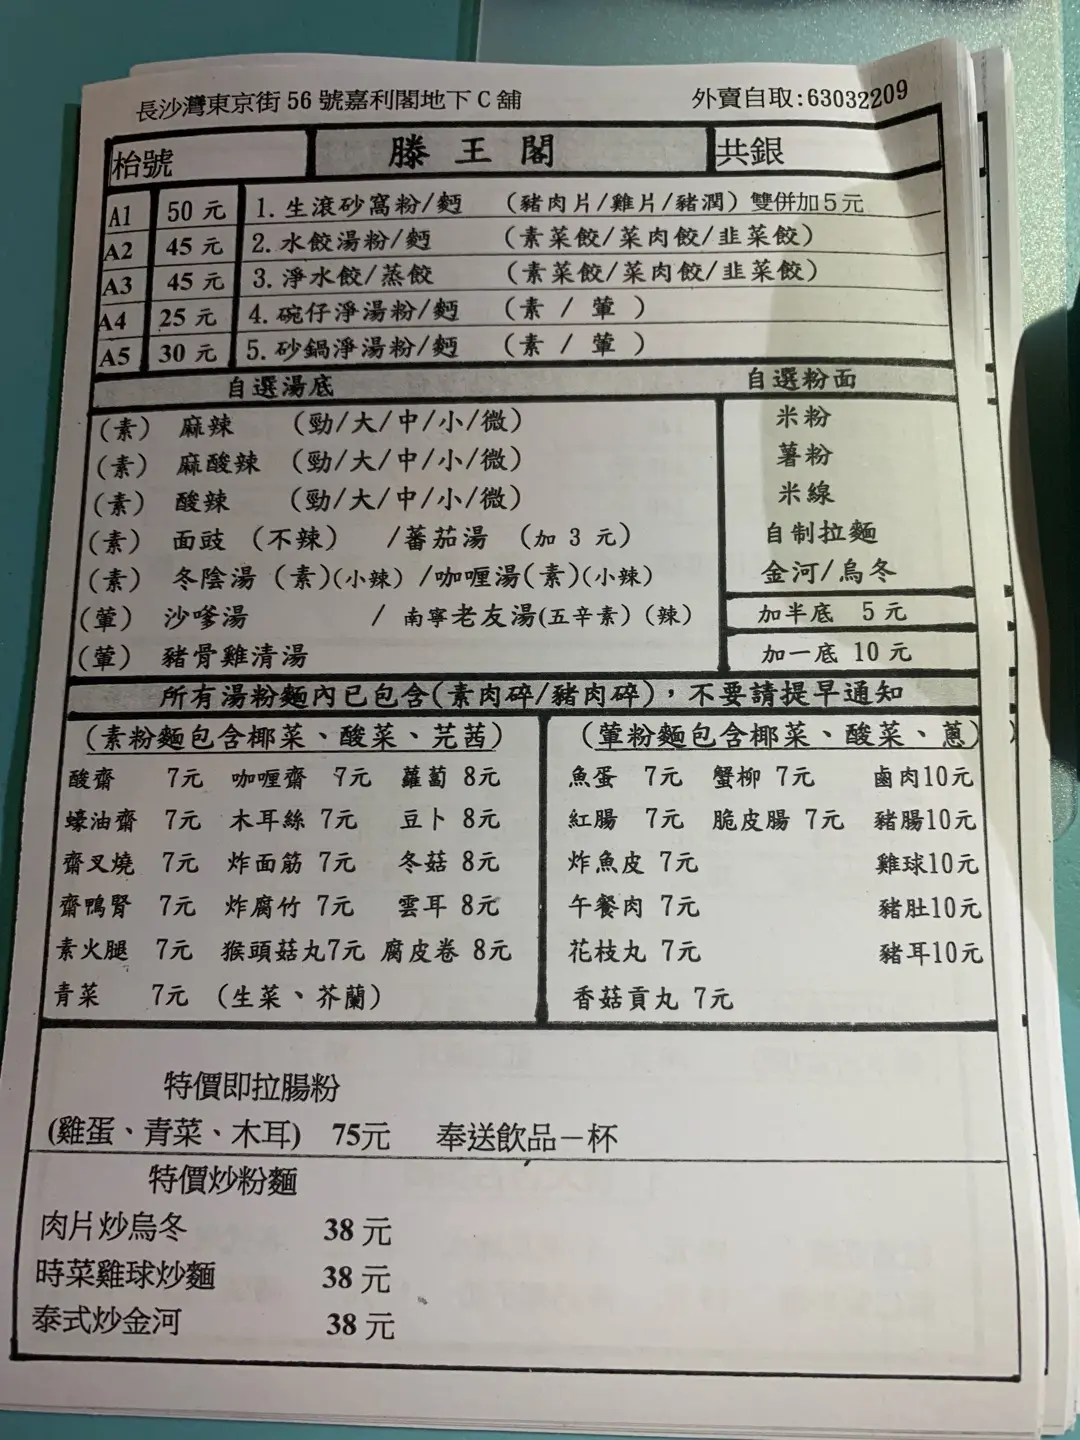 長沙灣東京街 56 號嘉利閣地下 C 舖 外賣自取:63032209
枱號 滕王閣 共銀
A1 50 元 1. 生滾砂窩粉/麪 (豬肉片/雞片/豬潤) 雙併加5元
A2 45 元 2. 水餃湯粉/麪 (素菜餃/菜肉餃/韭菜餃)
A3 45 元 3. 淨水餃/蒸餃 (素菜餃/菜肉餃/韭菜餃)
A4 25 元 4. 碗仔淨湯粉/麪 (素 / 葷 )
A5 30 元 5. 砂鍋淨湯粉/麪 (素 / 葷 )
自選湯底 自選粉面
(素) 麻辣 (勁/大/中/小/微) 米粉
(素) 麻酸辣 (勁/大/中/小/微) 薯粉
(素) 酸辣 (勁/大/中/小/微) 米線
(素) 面豉 (不辣) /蕃茄湯 (加 3 元) 自制拉麵
(素) 冬陰湯 (素)(小辣) /咖喱湯(素)(小辣) 金河/烏冬
(葷) 沙嗲湯 / 南寧老友湯(五辛素) (辣) 加半底 5 元
(葷) 豬骨雞清湯 加一底 10 元
所有湯粉麵內已包含(素肉碎/豬肉碎)，不要請提早通知
(素粉麵包含椰菜、酸菜、芫茜) (葷粉麵包含椰菜、酸菜、蔥)
酸齋 7元 咖喱齋 7元 蘿蔔 8元 魚蛋 7元 蟹柳 7元 鹵肉10元
蠔油齋 7元 木耳絲 7元 豆卜 8元 紅腸 7元 脆皮腸 7元 豬腸10元
齋叉燒 7元 炸面筋 7元 冬菇 8元 炸魚皮 7元 雞球10元
齋鴨腎 7元 炸腐竹 7元 雲耳 8元 午餐肉 7元 豬肚10元
素火腿 7元 猴頭菇丸7元 腐皮卷 8元 花枝丸 7元 豬耳10元
青菜 7元 (生菜、芥蘭) 香菇貢丸 7元
特價即拉腸粉
(雞蛋、青菜、木耳) 75元 奉送飲品一杯
特價炒粉麵
肉片炒烏冬 38 元
時菜雞球炒麵 38 元
泰式炒金河 38 元